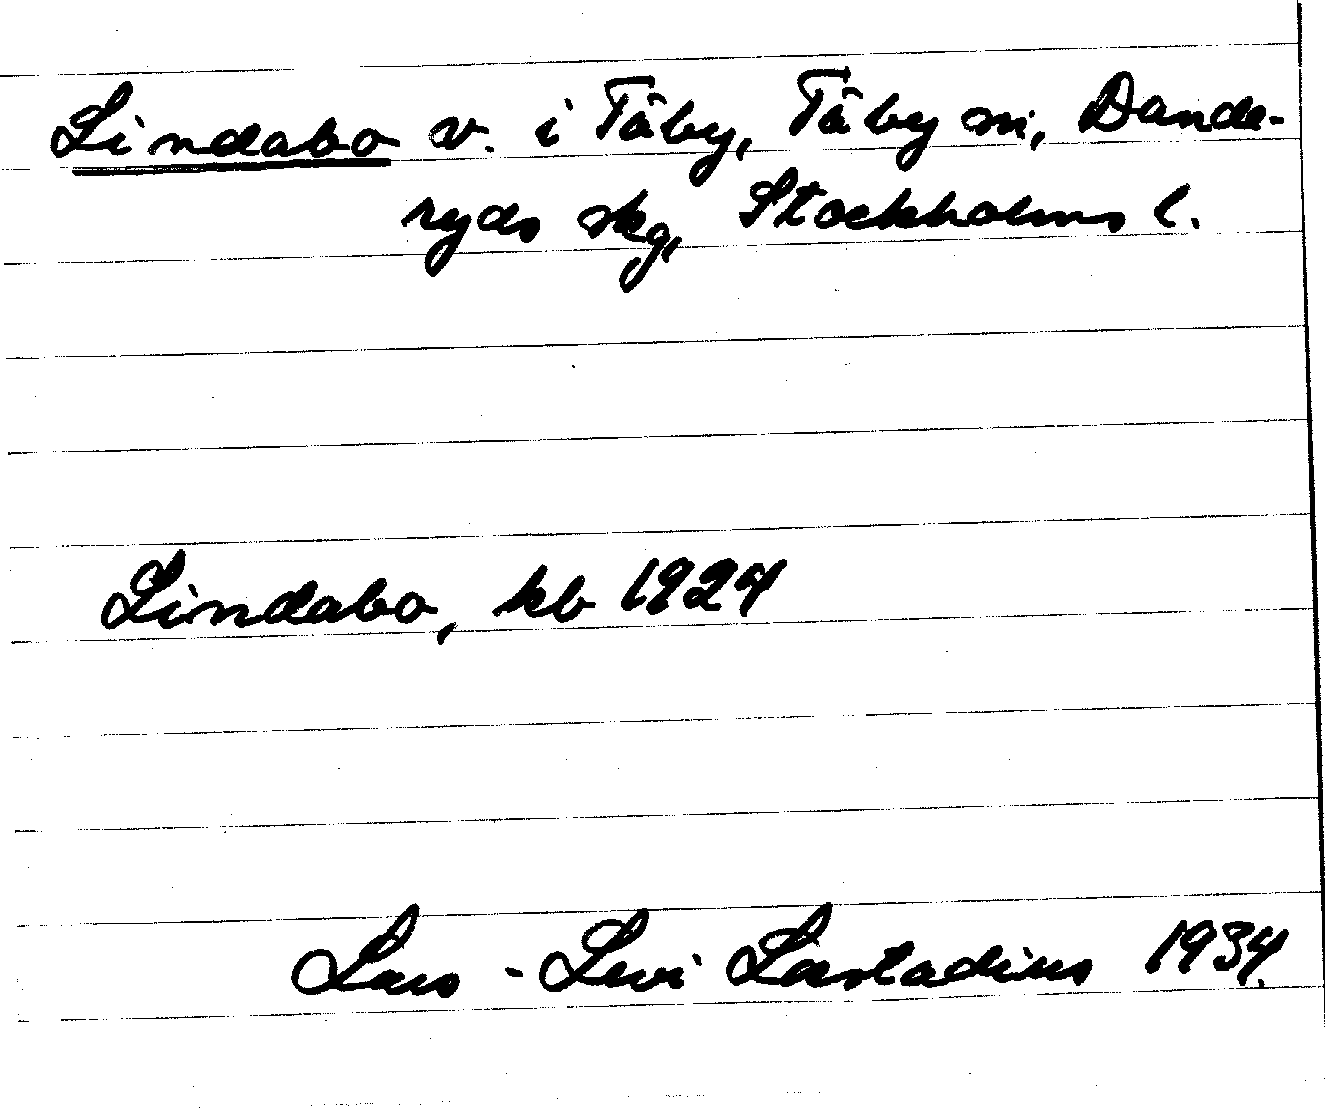 Lindabo v. i Täby, Täby sn, Dande-
ryds skg, Stockholms l.
Lindabo, kb 1924
Lars-Levi Læstadius 1934.